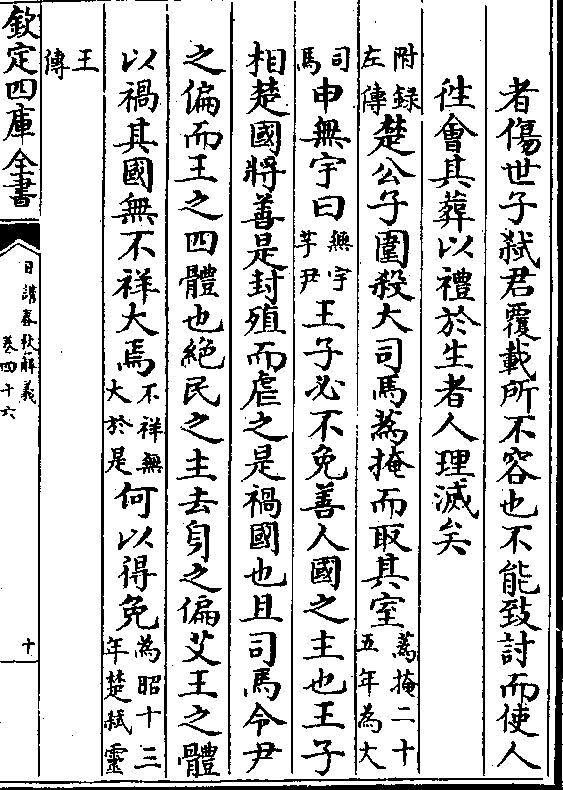 者傷世子弑君覆載所不容也不能致討而使人
徃會其葬以禮於生者人理滅矣
附録
左傳
楚公子圍殺大司馬蒍掩而取其室
蒍掩二十
五年為大
司
馬
申無宇曰
無宇
芋尹
王子必不免善人國之主也王子
相楚國將善是封殖而虐之是禍國也且司馬令尹
之偏而王之四體也絶民之主去身之偏艾王之體
以禍其國無不祥大焉
不祥無
大於是
何以得免
為昭十三
年楚弑靈
王
傳
欽定四庫全書
日講春秋解義
卷四十六
十